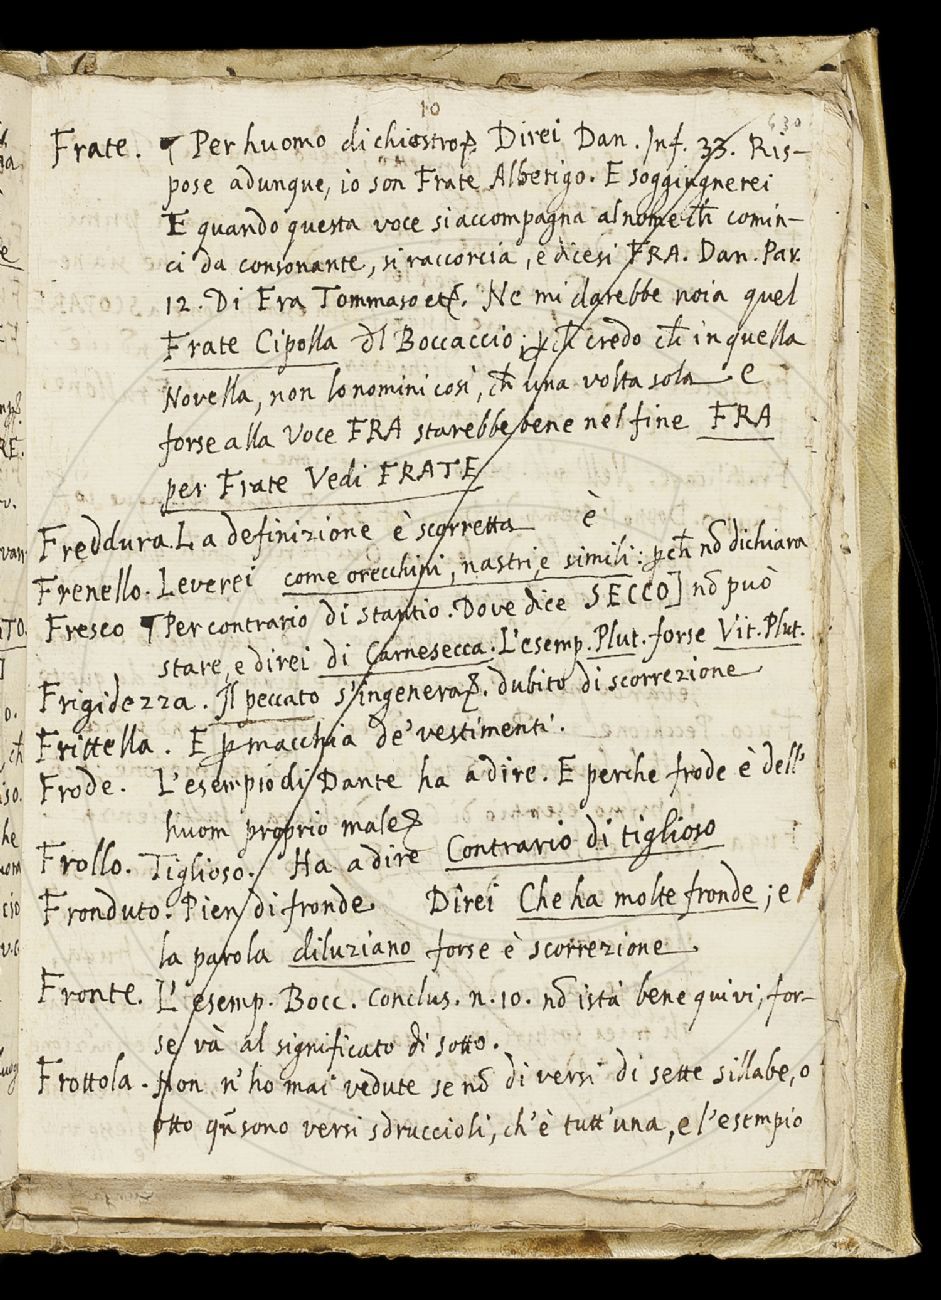 10
630
Frate. ¶ Per huomo di chiostro Direi Dan. Inf. 33. Ris-
pose adunque, io son Frate Alberigo. E soggiugnerei
E quando questa voce si accompagna al nome ch̃ comin-
ci da consonante, si raccorcia, e dicesi FRA. Dan. Par.
12. Di Fra Tommaso etc. Ne mi darebbe noia quel
Frate Cipolla dl Boccaccio; ꝑch̃ credo ch̃ in quella
Novella, non lo nomini così, ch̃ una volta sola e
forse alla Voce FRA starebbe bene nel fine FRA
per Frate Vedi FRATE
Freddura. La definizione è scorretta è
Frenello. Leverei come orecchini, nastri, e simili: ꝑch̃ nõ dichiara
Fresco ¶ Per contrario di stantio. Dove dice SECCO] nõ può
stare, e direi di Carnesecca. L'esemp. Plut. forse Vit. Plut.
Frigidezza. Il peccato s'ingenera. dubito di scorrezione
Frittella. E ꝑ macchia de' vestimenti.
Frode. L'esempio di Dante ha a dire. E perche frode è dell'
huom proprio male
Frollo. Tiglioso. Ha a dire Contrario di tiglioso
Fronduto. Pien di fronde Direi Che ha molte fronde; e
la parola diluziano forse è scorrezione.
Fronte. L'esemp. Bocc. Conclus. n. 10. nõ istà bene quivi, for-
se và al significato di sotto.
Frottola. Non n'ho mai vedute se nõ di versi di sette sillabe, o
otto qñ sono versi sdruccioli, ch'è tutt'una, e l'esempio